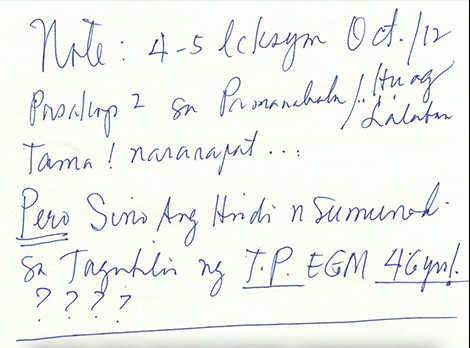 Note: 4-5 lcksym Oct./12
Pasakop 2 sa Pamamahala/.. Huag Lalaban
Tama! nararapat...
Pero Sino Ang Hindi n Sumunod.
sa Tagubilin ng T.P. EGM 46yrs!.
????